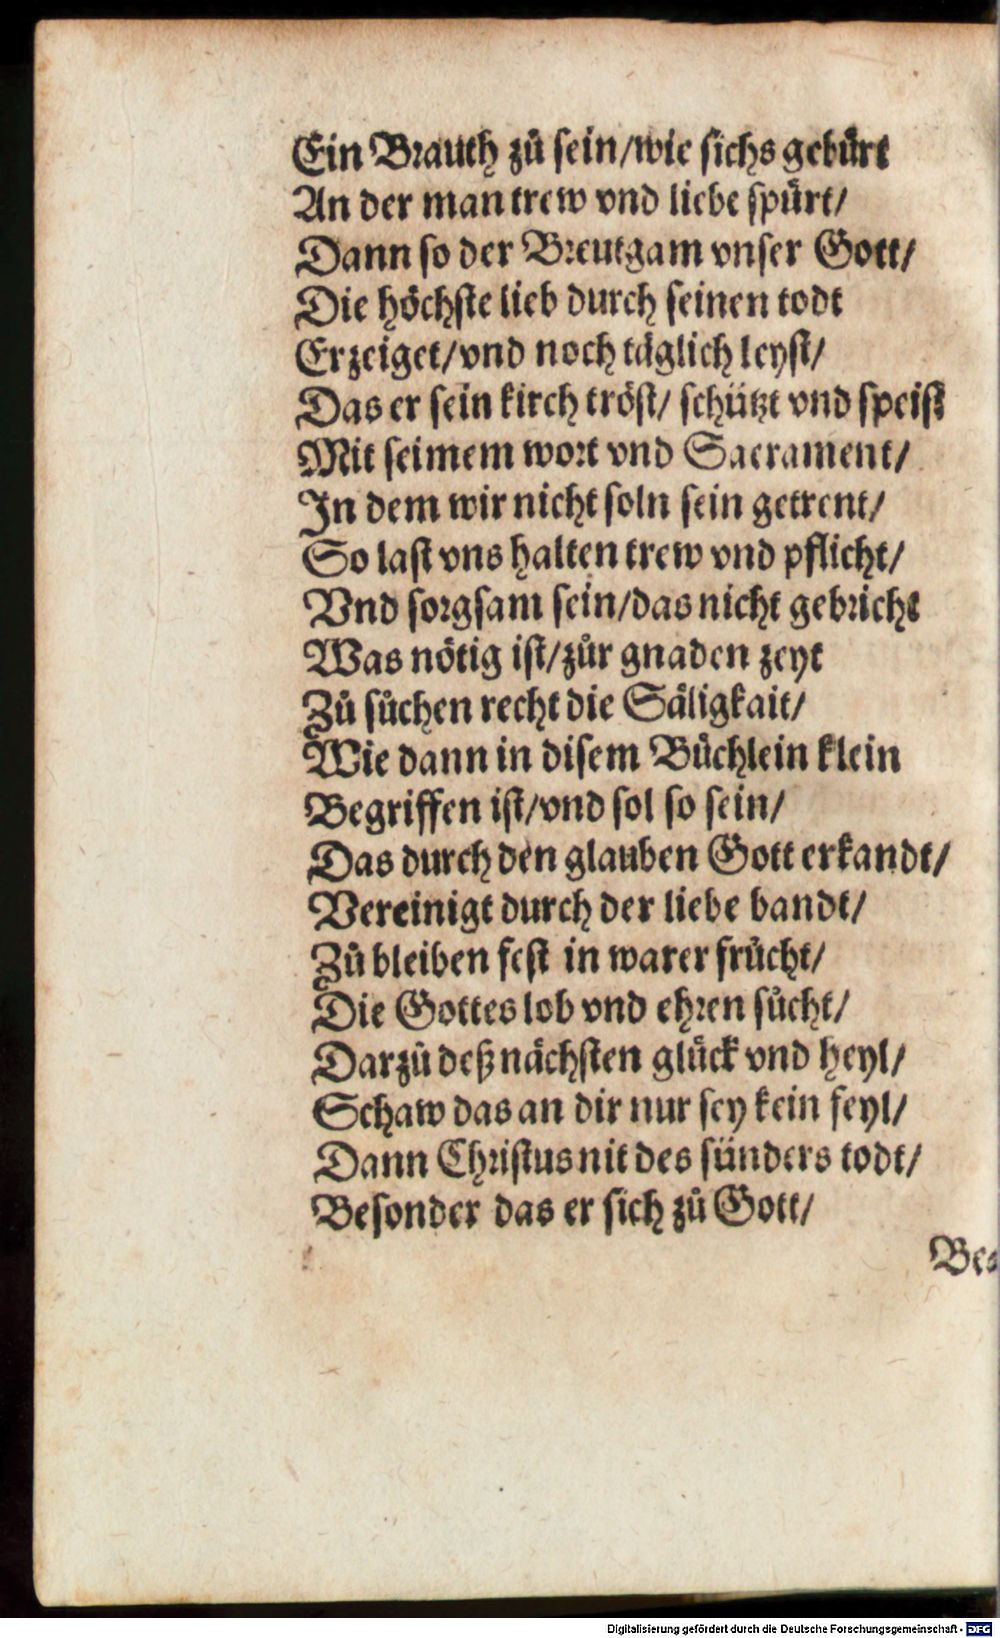 Ein Brauth zů sein/wie sichs gebürt
An der man trew vnd liebe spürt/
Dann so der Breutgam vnser Gott/
Die höchste lieb durch seinen todt
Erzeiget/vnd noch täglich leyst/
Das er sein kirch tröst/ schützt vnd speist
Mit seimem wort vnd Sacrament/
In dem wir nicht soln sein getrent/
So last vns halten trew vnd pflicht/
Vnd sorgsam sein/das nicht gebricht
Was nötig ist/zůr gnaden zeyt
Zů sůchen recht die Säligkait/
Wie dann in disem Büchlein klein
Begriffen ist/vnd sol so sein/
Das durch den glauben Gott erkandt/
Vereinigt durch der liebe bandt/
Zů bleiben fest in warer frücht/
Die Gottes lob vnd ehren sůcht/
Darzů deß nächsten glück vnd heyl/
Schaw das an dir nur sey kein feyl/
Dann Christus nit des sünders todt/
Besonder das er sich zů Gott/
Be⸗
Digitalisierung gefördert durch die Deutsche Forschungsgemeinschaft - DFG